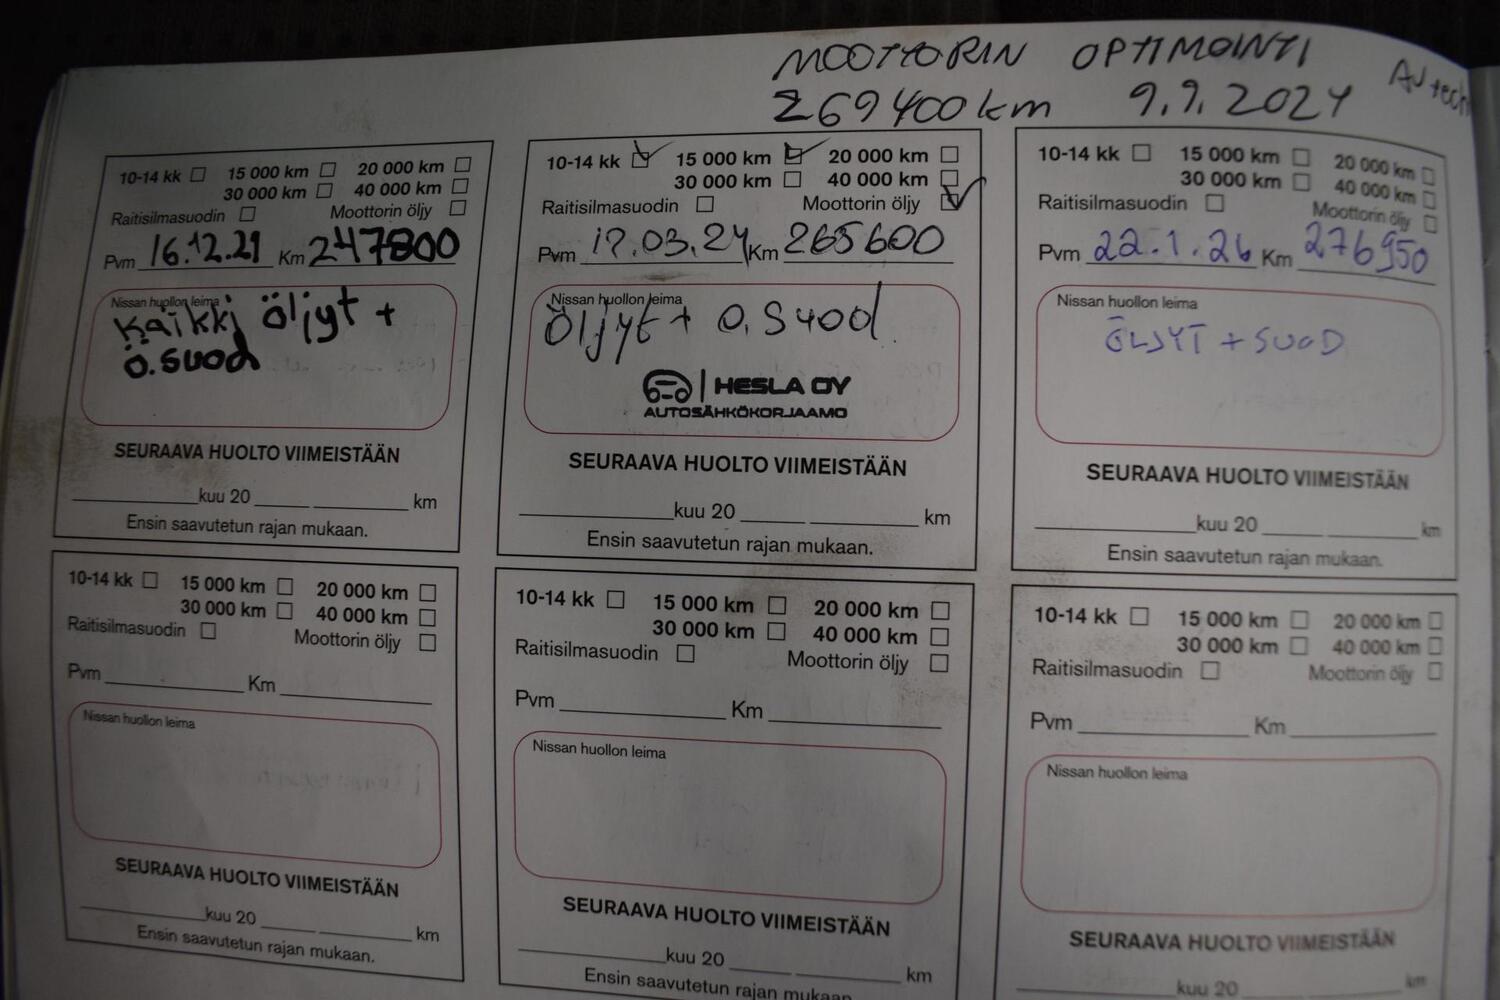 MOOTTORIN OPTIMOINTI AJ tech
269400 km 9.9.2024
10-14 kk 15 000 km 20 000 km
30 000 km 40 000 km
Raitisilmasuodin Moottorin öljy
Pvm 16.12.21 Km 247800
Nissan huollon leima
Kaikki öljyt +
ö.suod
SEURAAVA HUOLTO VIIMEISTÄÄN
kuu 20 km
Ensin saavutetun rajan mukaan.
10-14 kk 15 000 km 20 000 km
30 000 km 40 000 km
Raitisilmasuodin Moottorin öljy
Pvm 12.03.24 Km 265600
Nissan huollon leima
Öljyt + ö.suod
HESLA OY
AUTOSÄHKÖKORJAAMO
SEURAAVA HUOLTO VIIMEISTÄÄN
kuu 20 km
Ensin saavutetun rajan mukaan.
10-14 kk 15 000 km 20 000 km
30 000 km 40 000 km
Raitisilmasuodin Moottorin öljy
Pvm 22.1.26 Km 276950
Nissan huollon leima
ÖLJYT + SUOD
SEURAAVA HUOLTO VIIMEISTÄÄN
kuu 20 km
Ensin saavutetun rajan mukaan.
10-14 kk 15 000 km 20 000 km
30 000 km 40 000 km
Raitisilmasuodin Moottorin öljy
Pvm Km
Nissan huollon leima
SEURAAVA HUOLTO VIIMEISTÄÄN
kuu 20 km
Ensin saavutetun rajan mukaan.
10-14 kk 15 000 km 20 000 km
30 000 km 40 000 km
Raitisilmasuodin Moottorin öljy
Pvm Km
Nissan huollon leima
SEURAAVA HUOLTO VIIMEISTÄÄN
kuu 20 km
Ensin saavutetun rajan mukaan
10-14 kk 15 000 km 20 000 km
30 000 km 40 000 km
Raitisilmasuodin Moottorin öljy
Pvm Km
Nissan huollon leima
SEURAAVA HUOLTO VIIMEISTÄÄN
kuu 20 km